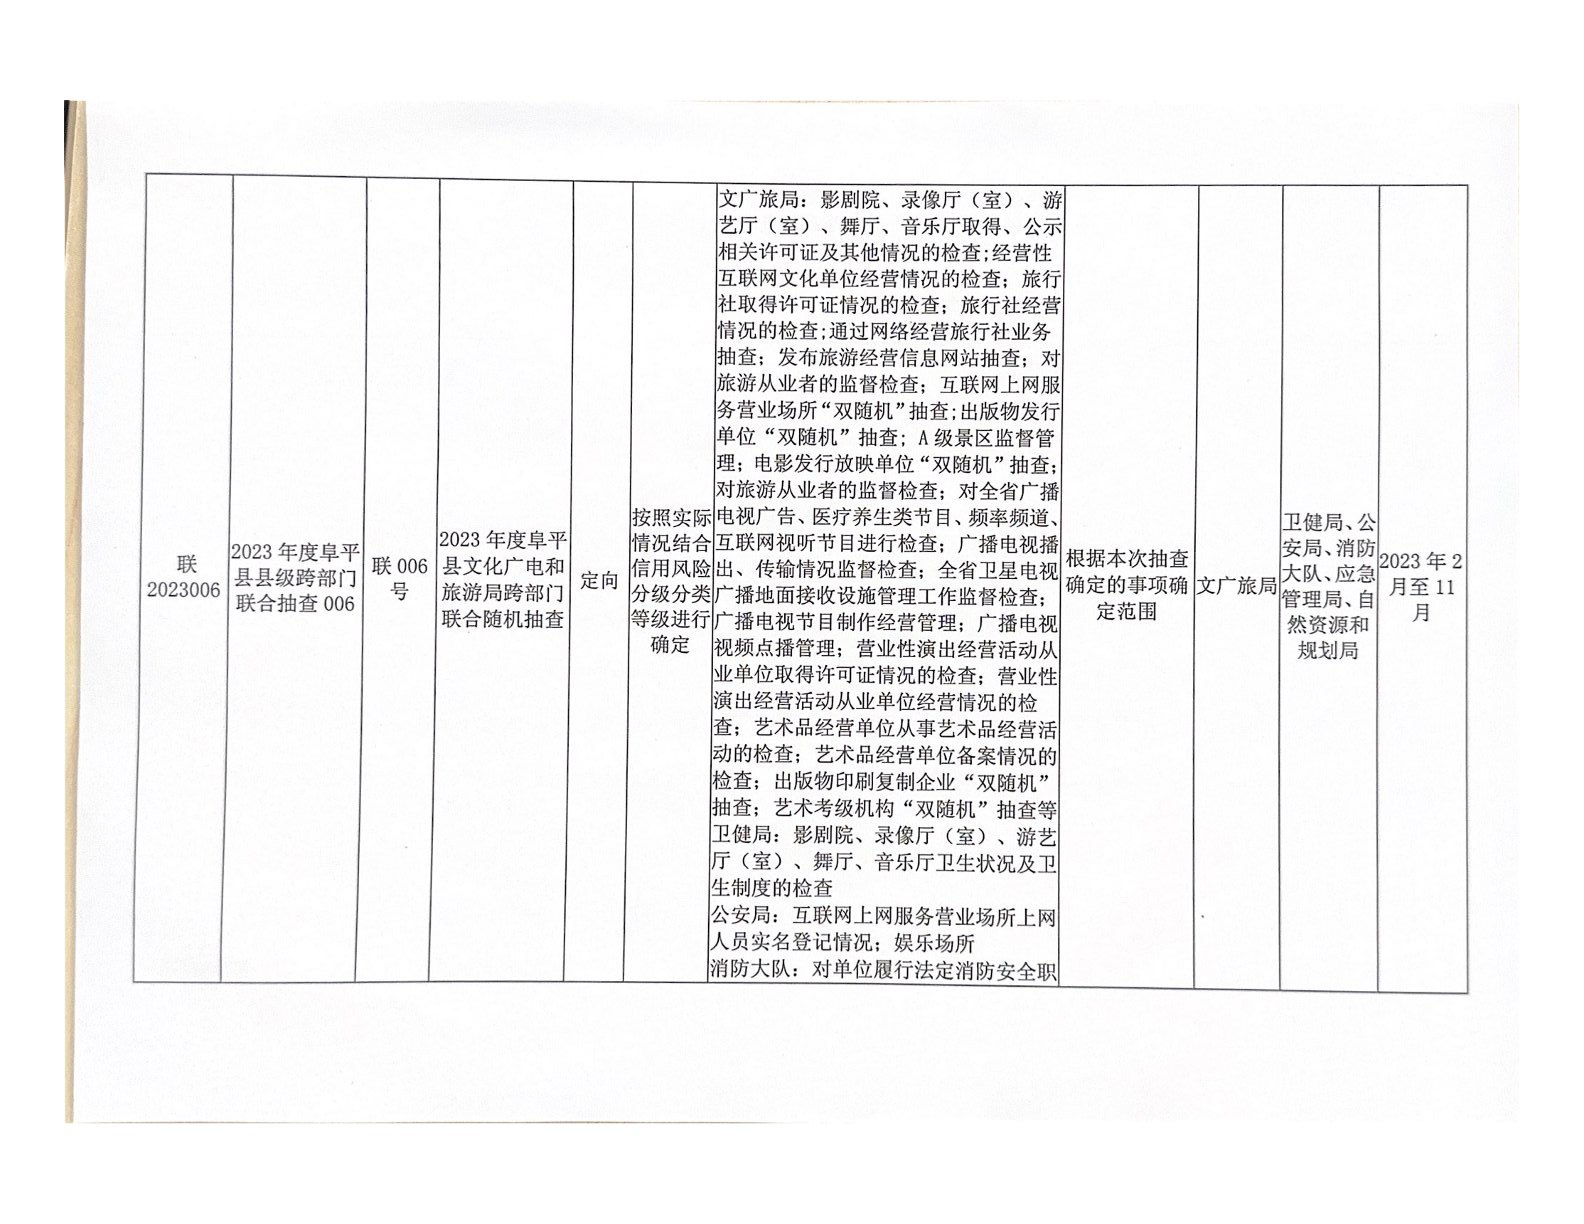 联
2023006
2023 年度阜平
县县级跨部门
联合抽查 006
联 006
号
2023 年度阜平
县文化广电和
旅游局跨部门
联合随机抽查
定向
按照实际
情况结合
信用风险
分级分类
等级进行
确定
文广旅局：影剧院、录像厅（室）、游
艺厅（室）、舞厅、音乐厅取得、公示
相关许可证及其他情况的检查;经营性
互联网文化单位经营情况的检查；旅行
社取得许可证情况的检查；旅行社经营
情况的检查;通过网络经营旅行社业务
抽查；发布旅游经营信息网站抽查；对
旅游从业者的监督检查；互联网上网服
务营业场所“双随机”抽查;出版物发行
单位“双随机”抽查; A 级景区监督管
理；电影发行放映单位“双随机”抽查；
对旅游从业者的监督检查；对全省广播
电视广告、医疗养生类节目、频率频道、
互联网视听节目进行检查；广播电视播
出、传输情况监督检查；全省卫星电视
广播地面接收设施管理工作监督检查；
广播电视节目制作经营管理；广播电视
视频点播管理；营业性演出经营活动从
业单位取得许可证情况的检查；营业性
演出经营活动从业单位经营情况的检
查；艺术品经营单位从事艺术品经营活
动的检查；艺术品经营单位备案情况的
检查；出版物印刷复制企业“双随机”
抽查；艺术考级机构“双随机”抽查等
卫健局：影剧院、录像厅（室）、游艺
厅（室）、舞厅、音乐厅卫生状况及卫
生制度的检查
公安局：互联网上网服务营业场所上网
人员实名登记情况；娱乐场所
消防大队：对单位履行法定消防安全职
根据本次抽查
确定的事项确
定范围
文广旅局
卫健局、公
安局、消防
大队、应急
管理局、自
然资源和
规划局
2023 年 2
月至 11
月